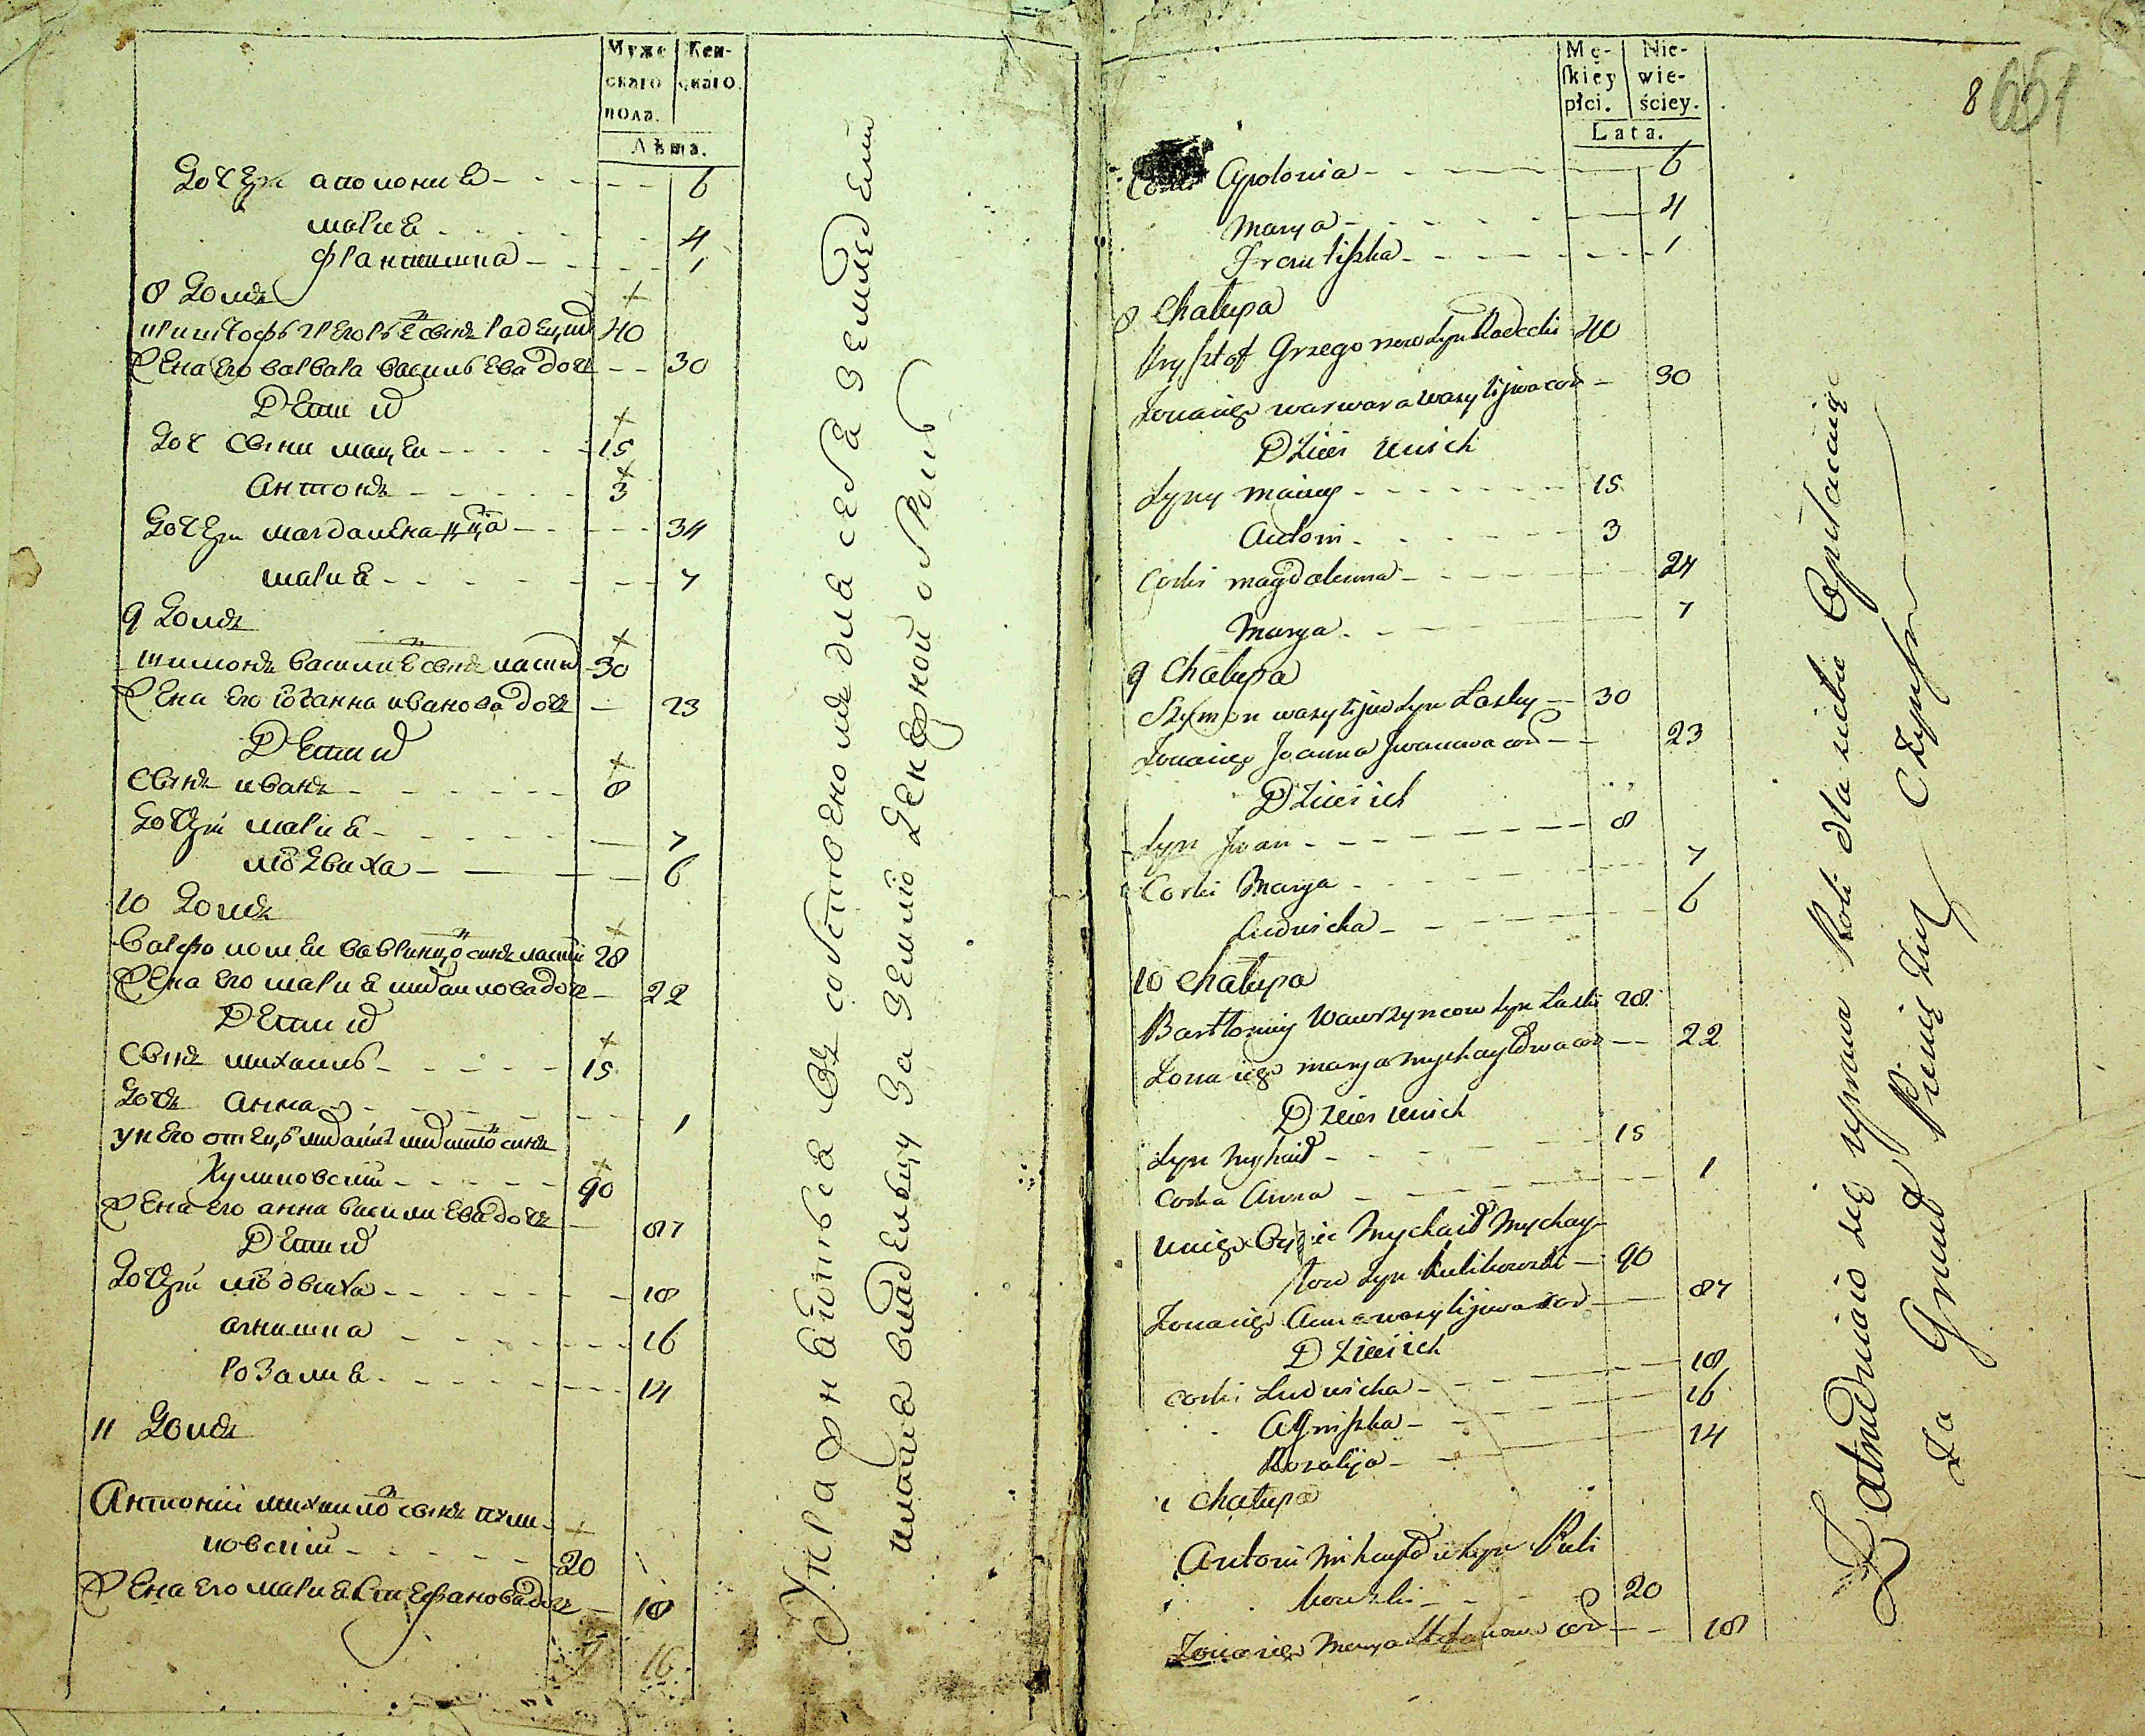 Муже Жен-
скаго скаго.
пола.
Лѣта.
Дочери аполония - - - - - 6
мария - - - - - 4
францишка - - - - 1
8 Домъ
криштофъ григорьевъ сынъ радецки 40
Жена его варвара васильева дочь - - 30
Дети ихъ
сыни мацей - - - - 15
Антонъ - - - - - 3
Дочери магдалена - - - - 34
мария - - - - - 7
9 Домъ
шимонъ василиевъ сынъ ласки 30
Жена его иоганна иванова дочь - 23
Дети ихъ
Сынъ иванъ - - - - - 8
Дочери мария - - - - - 7
людвиха - - - - - 6
10 Домъ
Варфоломей вавринцовъ синъ ласки 28
Жена его мария михайлова дочь - 22
Дети ихъ
Сынъ михаилъ - - - - - 15
Дочь Анна - - - - - 1
у него отецъ михаилъ михайловъ синъ
Куликовский - - - - - 90
Жена его анна василиева дочь - 87
Дети ихъ
Дочери людвиха - - - - - 18
агнишка - - - - - 16
розалия - - - - - 14
11 Домъ
Антоний михайловъ сынъ кули-
ковский - - - - - 20
Жена его мария Стефанова дочь - 18
7 16
Упражняються въ собственомъ для себя земледелии
платя владельцу за землю денежной оброкъ
Mę- Nie-
skiey wie-
płci. ściey.
Lata.
8 651
Corki Apolonia - - - - - 6
Marya - - - - - 4
Frantiszka - - - - - 1
8 Chałupa
Krysztof Grzegorzow syn Radecki 40
Zona iego warwara wasylijwa cor - 30
Dzieci u nich
Syny maciey - - - - - 15
Antoni - - - - - 3
Corki magdalenna - - - - - 24
Marya - - - - - 7
9 Chałupa
Szymon wasylijw syn Lasky - 30
Zona iego Joanna Jwanowa cor - 23
Dzieci ich
Syn Jwan - - - - - 8
Corki Marya - - - - - 7
Ludwicka - - - - - 6
10 Chałupa
Bartłomiy Wawrzyncow syn Laski 28
Zona iego marya mychayłowa cor - - 22
Dzieci u nich
Syn Myhaił - - - - - 15
Corka Anna - - - - - 1
u niego Oyciec Mychaił Mychay-
łow syn Kulikowski - 90
Zona iego Anna wasylijwa cor - - 87
Dzieci ich
Corki Ludwicka - - - - - 18
Agniszka - - - - - 16
Rozalija - - - - - 14
Chałupa
Antoni Mihayłow syn Kuli
kowski - - - - 20
Zona iego Marya Stefanowa cor - - 18
Zatrudniaio się uprawą Roli dla siebie Opłacaiąc
Za Grunt Pieniężny Czynsz